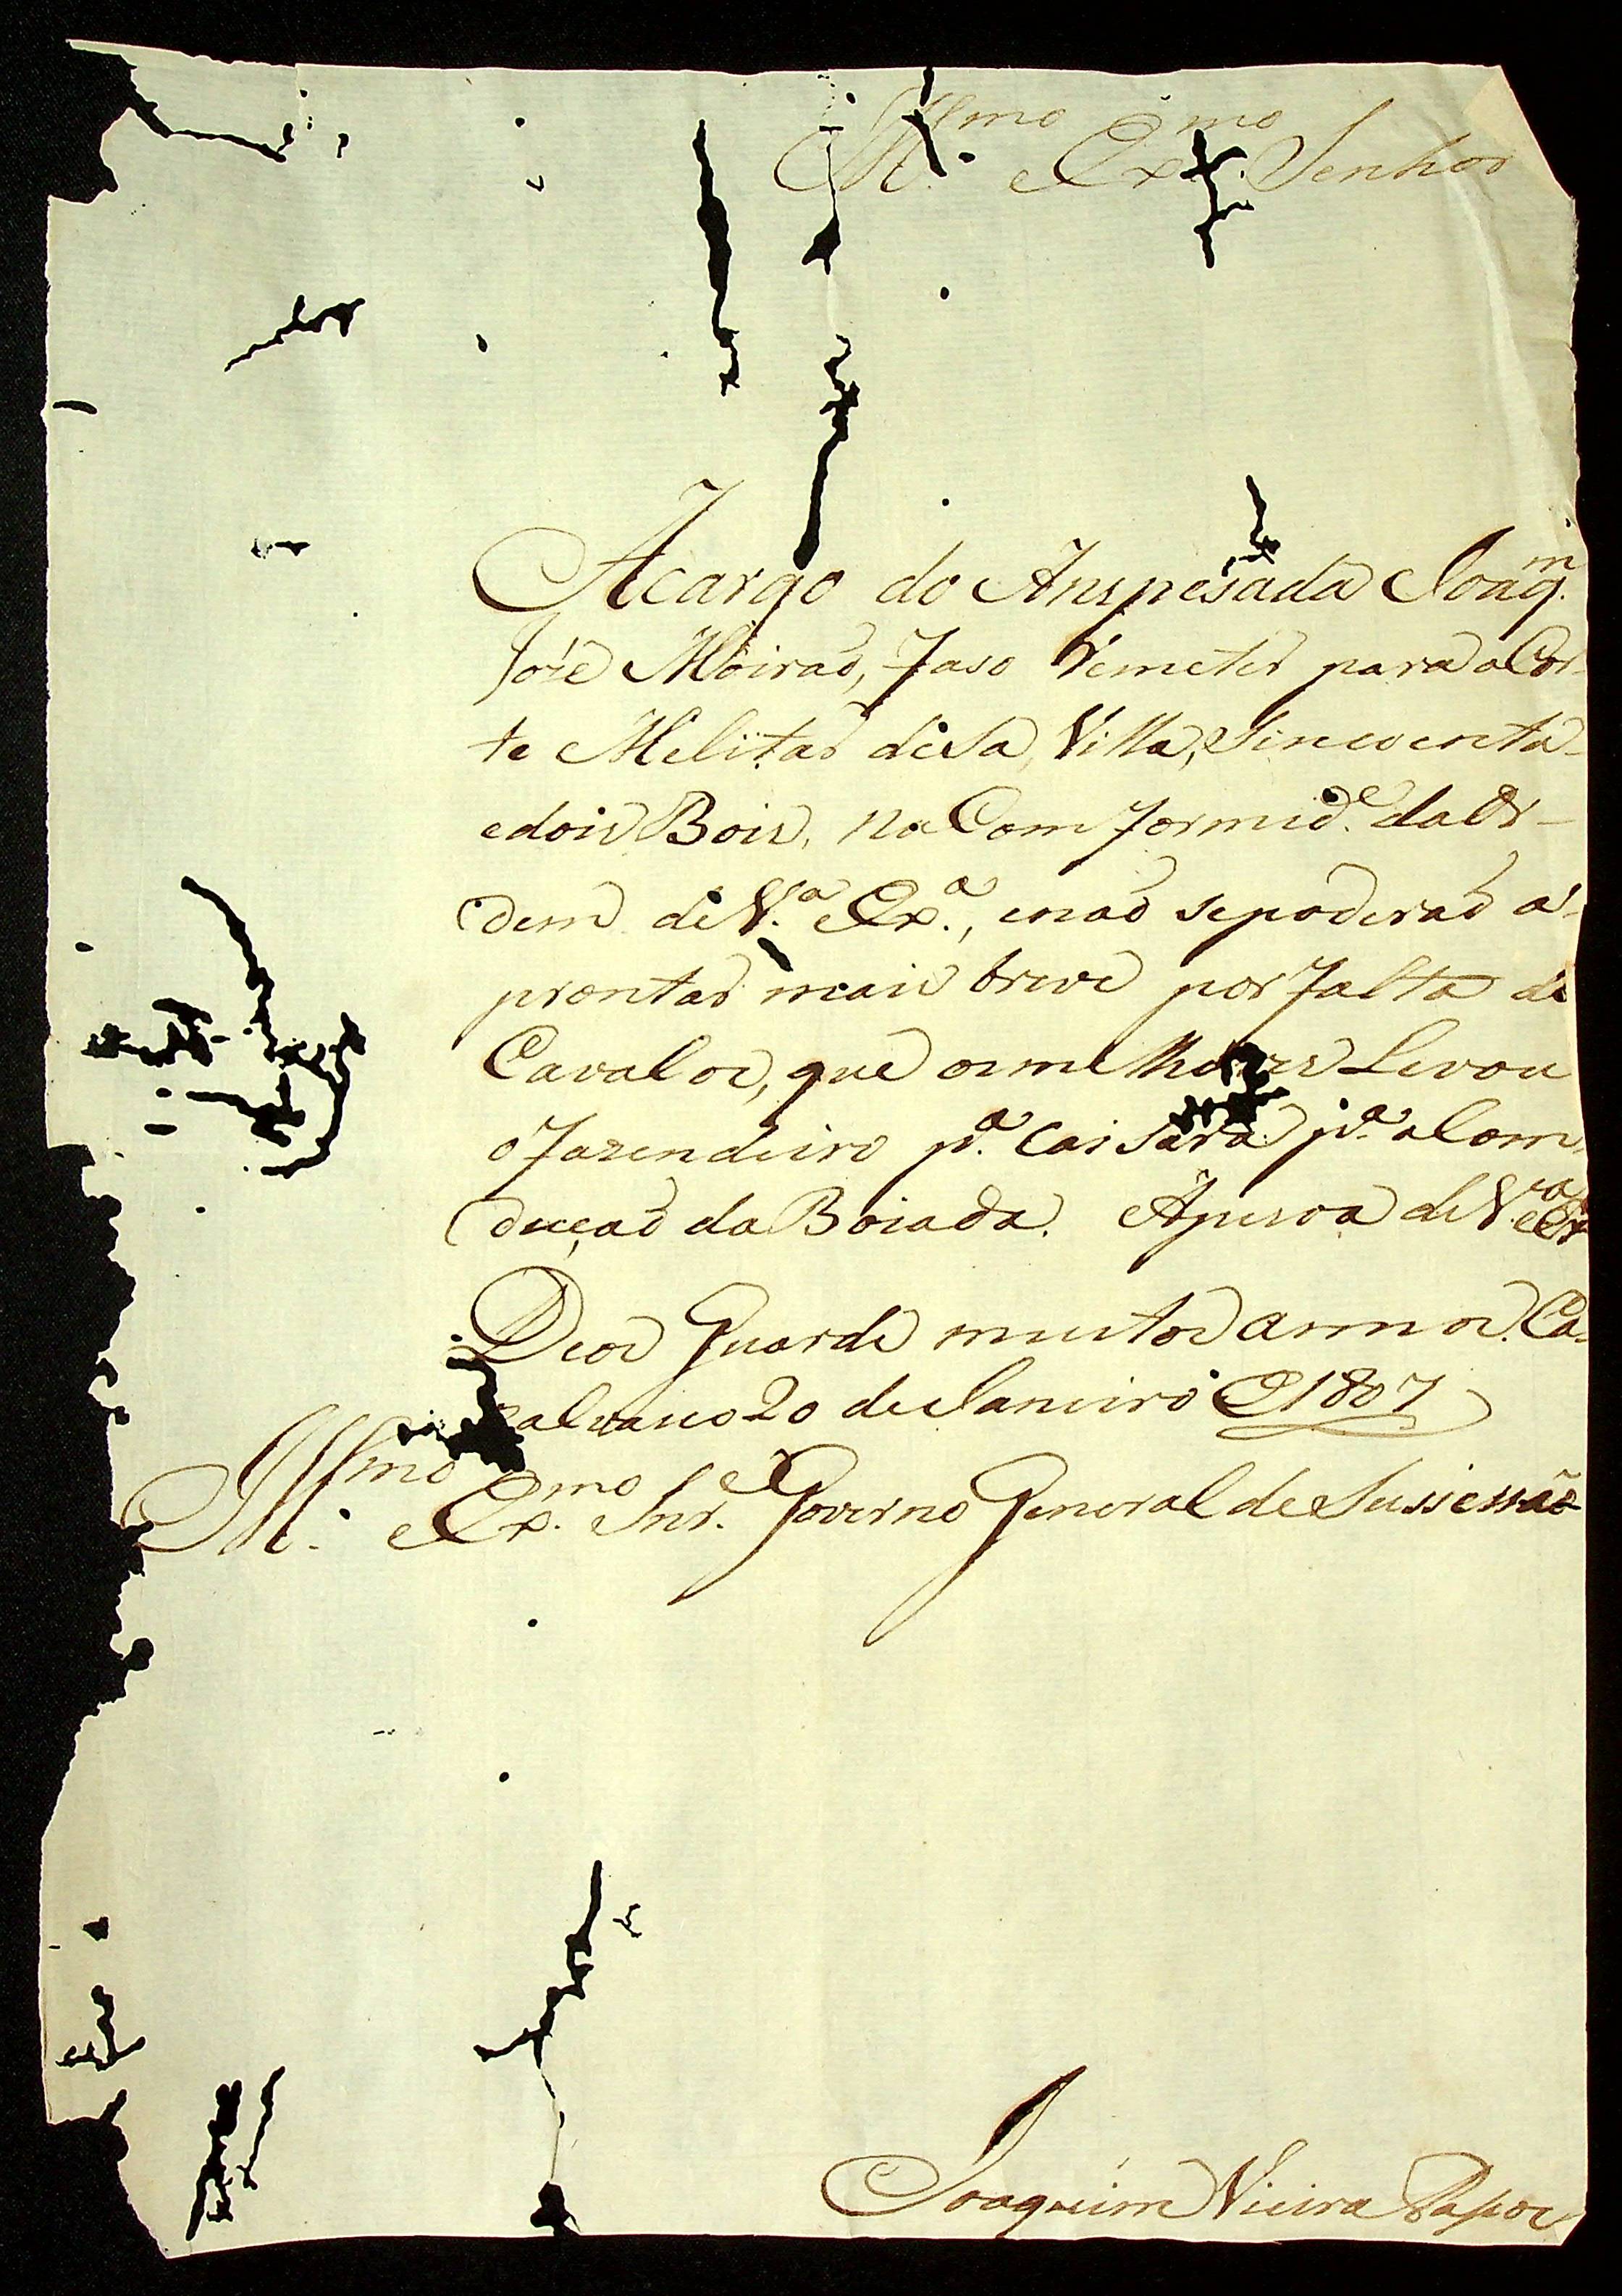 Ill.mo Ex.mo Senhor
Acargo do Anspesada Joaq.m
José Moirão, faso Remeter para o Cor-
te Melitar desa Villa, Sincoenta
edois Bois, na Comformid.e da Or-
dem de V.a Ex.a, enaõ sepoderaõ a-
prontar mais breve por falta de
Cavalos, que os melhores Levou
o fazendeiro p.a Caisara p.a a Com
duçaõ da Boiada. Apesoa de V.a Ex
Deos Guarde muitos annos. Ca-
salvasco 20 de Janeiro @ 1807
Ill.mo e Ex.mo Snr. Governo General de Susessão
Joaquim Vieira Passos